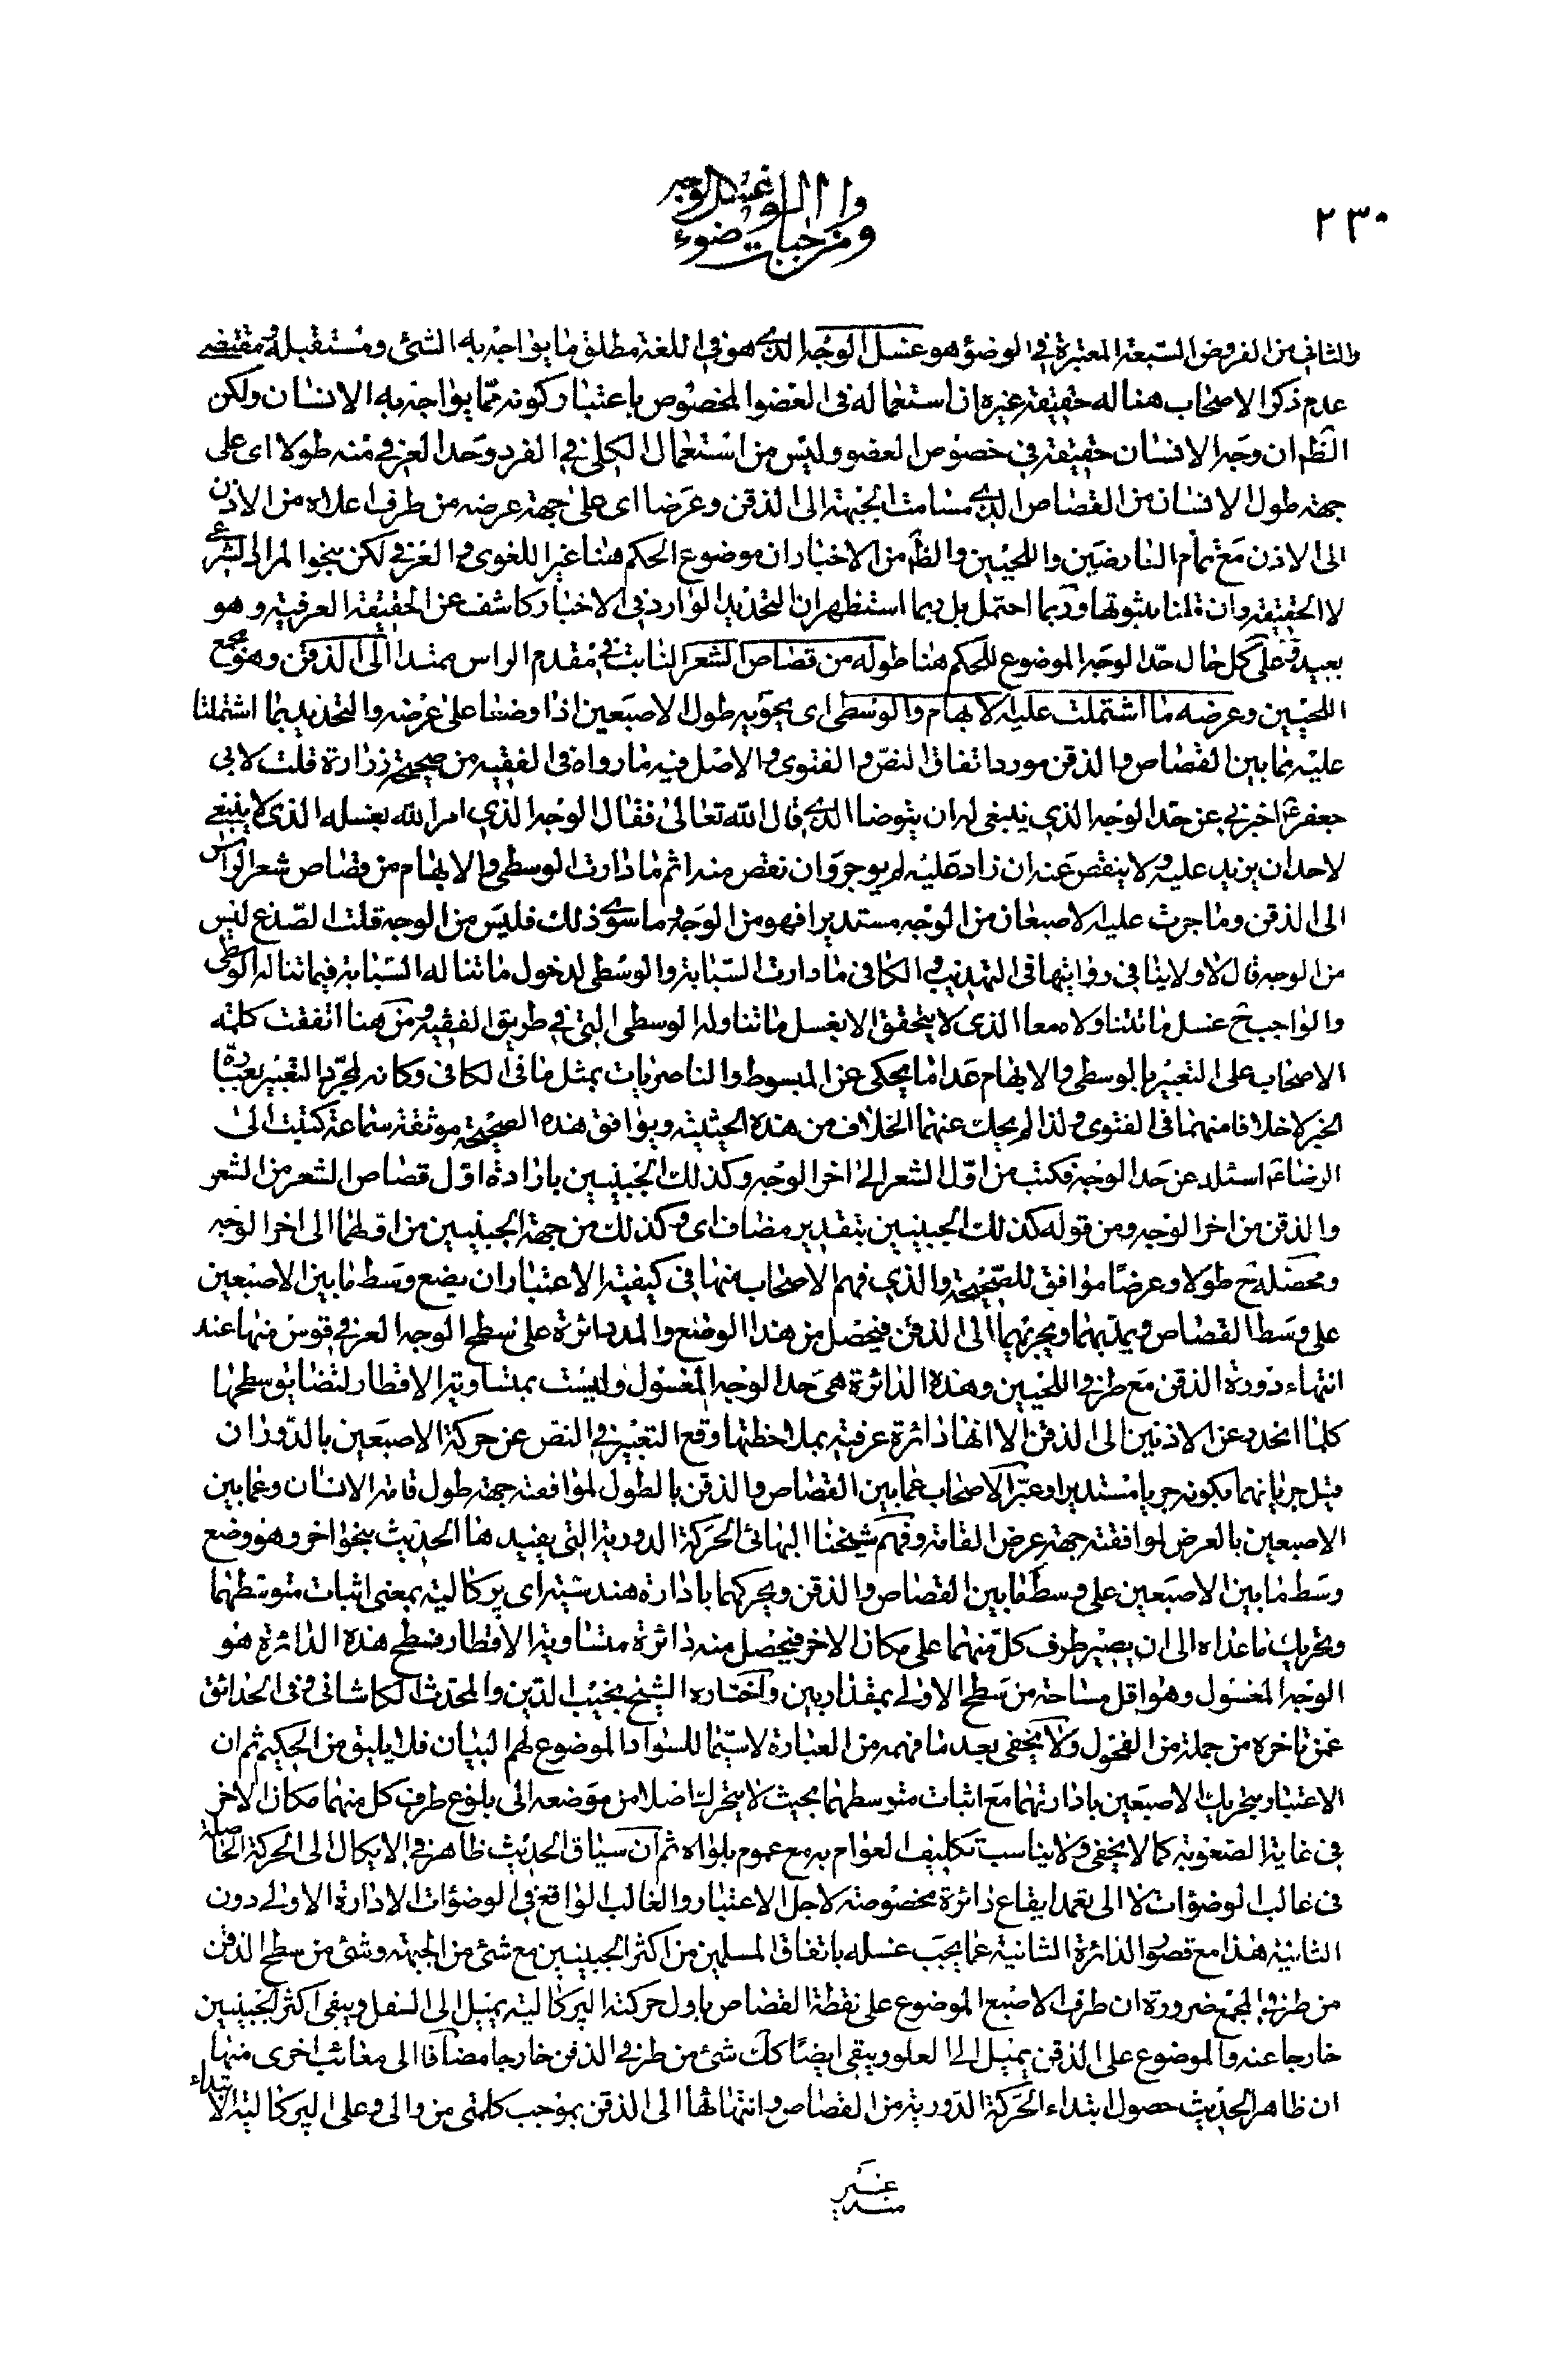 ٢٣٠
ومن واجبات الوضوء غسل الوجه
والثاني من الفروض السبعة المعتبرة في الوضوء هو غسل الوجه الذي هو في اللغة مطلق ما يواجه به الشئ ومستقبله ومقتضى
عدم ذكر الاصحاب هنا له حقيقة غيره ان استعماله في العضو المخصوص باعتبار كونه مما يواجه به الانسان ولكن
الظم ان وجه الانسان حقيقة في خصوص العضو وليس من استعمال الكلي في الفرد وحد العرفي منه طولا اى على
جهة طول الانسان من القصاص الذي مسامت الجبهة الى الذقن وعرضا اى على جهة عرضه من طرف اعلاه من الاذن
الى الاذن مع تمام العارضين واللحيين والظم من الاخبار ان موضوع الحكم هنا غير اللغوى والعرفي لكن بنحو المراد الشرعي
لا الحقيقة وان قلنا بثبوتها وربما احتمل بل ربما استظهر ان التحديد الوارد في الاخبار كاشف عن الحقيقة العرفية وهو
بعيد على كل حال حد الوجه الموضوع للحكم هنا طوله من قصاص الشعر النابت في مقدم الراس ممتدا الى الذقن وهو مجمع
اللحيين وعرضه ما اشتملت عليه الابهام والوسطى اى يحويه طول الاصبعين اذا وضعتا على عرضه والتحديد بما اشتملتا
عليه بما بين القصاص والذقن مورد اتفاق النص والفتوى والاصل فيه ما رواه في الفقيه من صحيحة زرارة قلت لابي
جعفر ع اخبرني عن حد الوجه الذي ينبغي له ان يتوضا الذي قال الله تعالى فقال الوجه الذي امر الله بغسله الذي لا ينبغي
لاحد ان يزيد عليه ولا ينقص عنه ان زاد عليه لم يوجر وان نقص منه اثم ما دارت الوسطى والابهام من قصاص شعر الراس
الى الذقن وما جرت عليه الاصبعان من الوجه مستديرا فهو من الوجه وما سوى ذلك فليس من الوجه قلت الصدغ ليس
من الوجه قال لا ولا ينافي روايتها في التهذيب والكافي ما دارت السبابة والوسطى لدخول ما تناله السبابة فيما تناله الوسطى
والواجب ح غسل ما تتناولاه معا الذى لا يتحقق الا بغسل ما تناوله الوسطى التي في طريق الفقيه ومن هنا اتفقت كلمة
الاصحاب على التعبير بالوسطى والابهام عدا ما يحكى عن المبسوط والناصريات بمثل ما في الكافي وكانه لمجرد التعبير بعبارة
الخبر لا خلافا منهما في الفتوى ولذا لم يحك عنهما الخلاف من هذه الحيثية ويوافق هذه الصحيحة موثقة سماعة كتبت الى
الرضا ع اسئله عن حد الوجه فكتب من اول الشعر الى اخر الوجه وكذلك الجبينين بارادة اول قصاص الشعر من الشعر
والذقن من اخر الوجه ومن قوله كذلك الجبينين بتقدير مضاف اى وكذلك من جهة الجبينين من اولهما الى اخر الوجه
ومحصله ح طولا وعرضا موافق للصحيحة والذي فهم الاصحاب منها في كيفية الاعتبار ان يضع وسط ما بين الاصبعين
على وسط القصاص ويمدهما ويجريهما الى الذقن فيحصل من هذا الوضع والمد دائرة على سطح الوجه العرفي قوس منها عند
انتهاء دورة الذقن مع طرفي اللحيين وهذه الدائرة هي حد الوجه المغسول وليست بمتساوية الاقطار لتضايق سطحها
كلما انحدر عن الاذنين الى الذقن الا انها دائرة عرفية بملاحظتها وقع التعبير في النص عن حركة الاصبعين بالدوران
مثل جريانهما بكونه جريا مستديرا وعبر الاصحاب عما بين القصاص والذقن بالطول لموافقته جهة طول قامة الانسان وعما بين
الاصبعين بالعرض لموافقته جهة عرض القامة وفهم شيخنا البهائى الحركة الدورية التي يفيدها الحديث بنحو اخر وهو وضع
وسط ما بين الاصبعين على وسط ما بين القصاص والذقن ويحركهما بادارة هندسية اى پركالية بمعنى اثبات متوسطهما
وتحريك ما عداه الى ان يصير طرف كل منهما على مكان الاخر فيحصل منه دائرة متساوية الاقطار فسطح هذه الدائرة هو
الوجه المغسول وهو اقل مساحة من سطح الاولى بمقدار بين واختاره الشيخ نجيب الدين والمحدث الكاشاني وفي الحدائق
عمن تاخره من جملة من الفحول ولا يخفى بعد ما فهمه من العبارة لا سيما للسواد الموضوع لهم البيان فلا يليق من الحكيم ثم ان
الاعتبار بتحريك الاصبعين بادارتهما مع اثبات متوسطهما بحيث لا يتحرك اصلا من موضعه الى بلوغ طرف كل منهما مكان الاخر
في غاية الصعوبة كما لا يخفى ولا يناسب تكليف العوام به مع عموم بلواه ثم ان سياق الحديث ظاهر في الايكال الى الحركة الحاصلة
في غالب الوضوءات لا الى تعمد ايقاع دائرة مخصوصة لاجل الاعتبار والغالب الواقع في الوضوءات الادارة الاولى دون
الثانية هذا مع قصور الدائرة الثانية عما يجب غسله باتفاق المسلمين من اكثر الجبينين مع شئ من الجبهة وشئ من سطح الذقن
من طرفي المجمع ضرورة ان طرف الاصبع الموضوع على نقطة القصاص باول حركته الپركالية يميل الى السفل ويبقى اكثر الجبينين
خارجا عنه والموضوع على الذقن يميل الى العلو ويبقى ايضا كك شئ من طرفي الذقن خارجا مضافا الى مغائب اخرى منها
ان ظاهر الحديث حصول ابتداء الحركة الدورية من القصاص وانتهائها الى الذقن بموجب كلمتي من والى وعلى الپركالية الابتداء